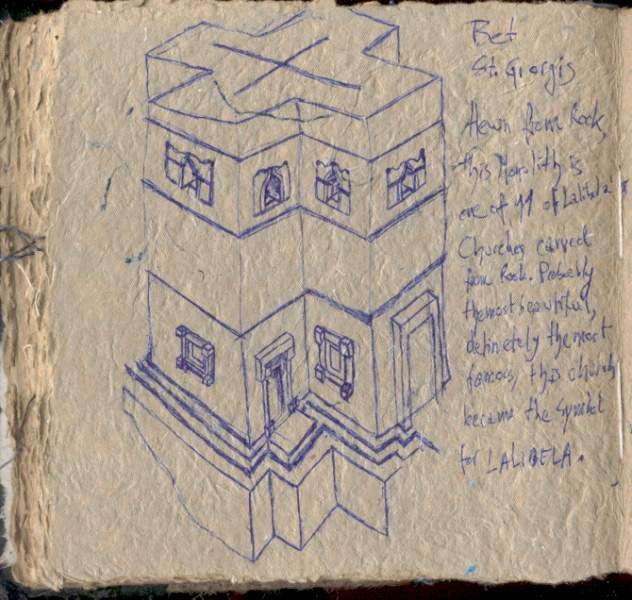 Bet
St. Giorgis
Hewn from Rock,
this Monolith is
one of 11 of Lalibela's
Churches carved
from Rock. Probably
the most beautiful,
definetely the most
famous, this church
became the symbol
for LALIBELA.